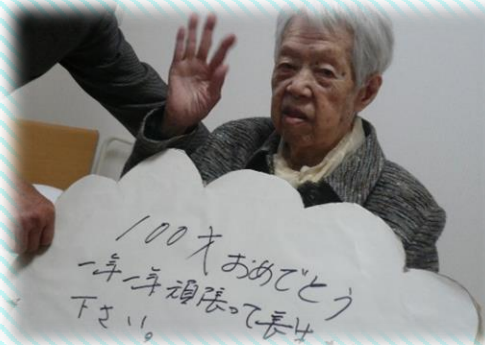 100才おめでとう
一年一年頑張って長生
下さい。